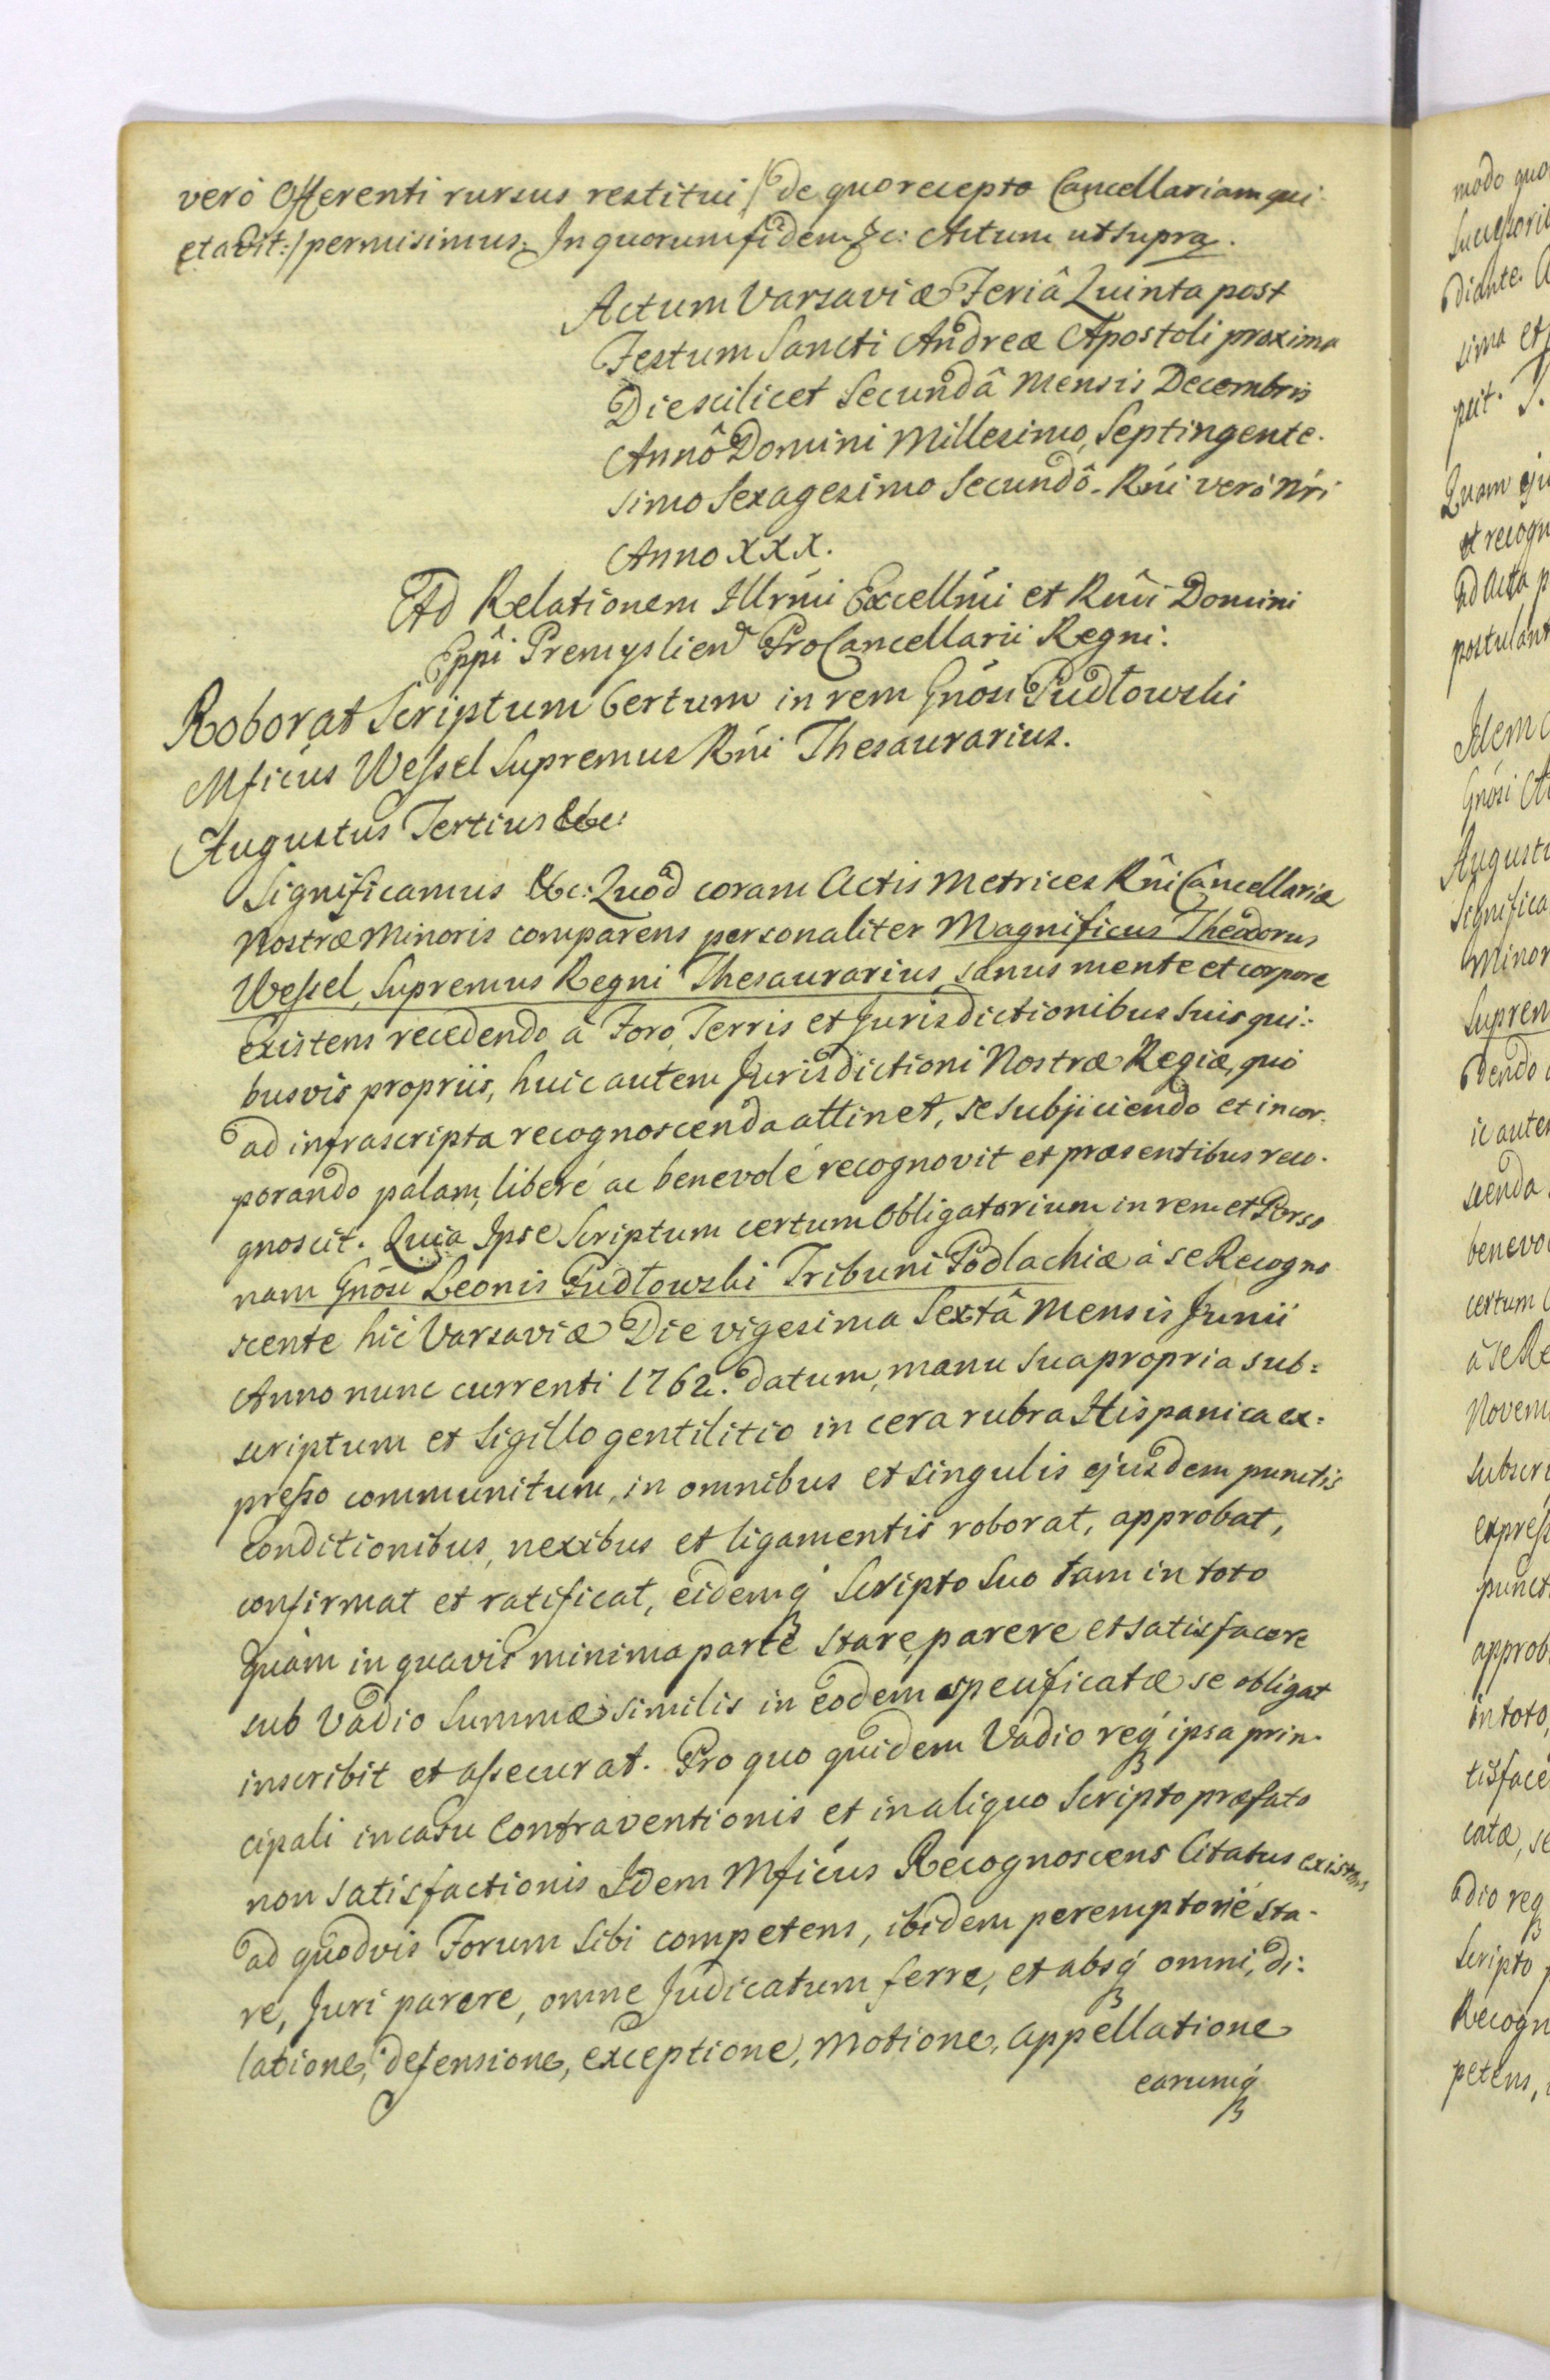 verò Offerenti rursus restitui /de quo recepto Cancellariam qui-
etavit:/ permisimus. In quorum fidem &c: Actum ut supra.
Actum Varsaviæ Feriâ Quinta post
Festum Sancti Andreæ Apostoli proxima
Die scilicet Secundâ Mensis Decembris
Annô Domini Millesimo, Septingente-
simo Sexagesimo Secundô. Rńi verò Nrí
Anno XXX.
Ad Relationem Illrḿi Excellḿi et Rńdi Domini
Eppî Premyslien ProCancellarii Regni.
Roborat Scriptum Certum in rem Gnosi Pudłowski
Mficus Weſsel Supremus Rńi Thesaurarius.
Augustus Tertius &c:
Significamus &c: Quod coram Actis Metrices Rńi Cancellariæ
Nostræ Minoris comparens personaliter Magnificus Theodorus
Weſsel, Supremus Regni Thesaurarius, sanus mente et corpore
Existens recedendo à Foro, Terris et Jurisdictionibus Suis qui-
busvis propriis, huic autem Jurisdictioni Nostræ Regiæ, quò
ad infrascripta recognoscenda attinet, se subjiciendo et incor-
porando palam, liberé ac benevolé recognovit et præsentibus reco-
gnoscit. Quia Ipse Scriptum certum Obligatorium in rem et Perso
nam Gnosi Leonis Pudłowski Tribuni Podlachiæ à se Recogno
scente hic Varsaviæ Die vigesima Sextâ Mensis Junii
Anno nunc currenti 1762. datum, manu sua propria sub=
scriptum et Sigillo gentilitio in cera rubra Hispanica ex=
preſso communitum, in omnibus et singulis ejusdem punctis
conditionibus, nexibus et ligamentis roborat, approbat,
confirmat et ratificat, eidemq́ Scripto Suo tam in toto
quàm in quavis minima parte stare, parere et satisfacere
sub Vadio Summæ similis in eodem specificatæ se obligat
inscribit et aſsecurat. Pro quo quidem Vadio req́ ipsa prin-
cipali in casu Contraventionis et in aliquo Scripto præfato
non satisfactionis Idem Mficus Recognoscens Citatus existens
ad quodvis Forum Sibi competens, ibidem peremptoriè sta-
re, Juri parere, omne Judicatum ferre, et absq́ omni, di-
latione, defensione, exceptione, motione, appellatione
earumq́
modo quo
Succeſsorib
diante. A
sima et
peit. J.
Quam eju
et recogn
ad Acta p
postulant
Idem
Gnosi
Augustu
Significa
Minor
Suprem
dendo
ic autem
scenda
benevo
certum
à se Re
Novem
subscri
expreſs
punct
approb
in toto,
tisface
catæ, se
adio req́
Scripto
Recogn
petens,